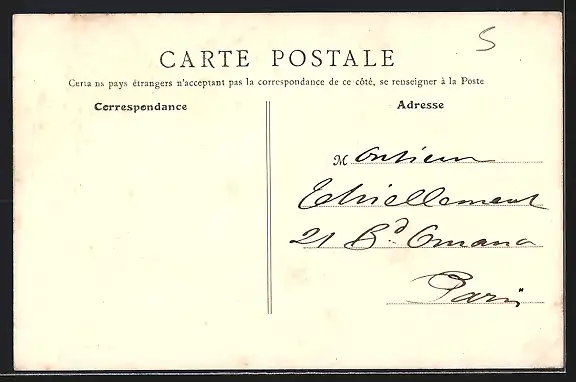 S
CARTE POSTALE
Certains pays étrangers n'acceptant pas la correspondance de ce côté, se renseigner à la Poste
Correspondance
Adresse
Monsieur
Thiellement
21 Bd Ornano
Paris